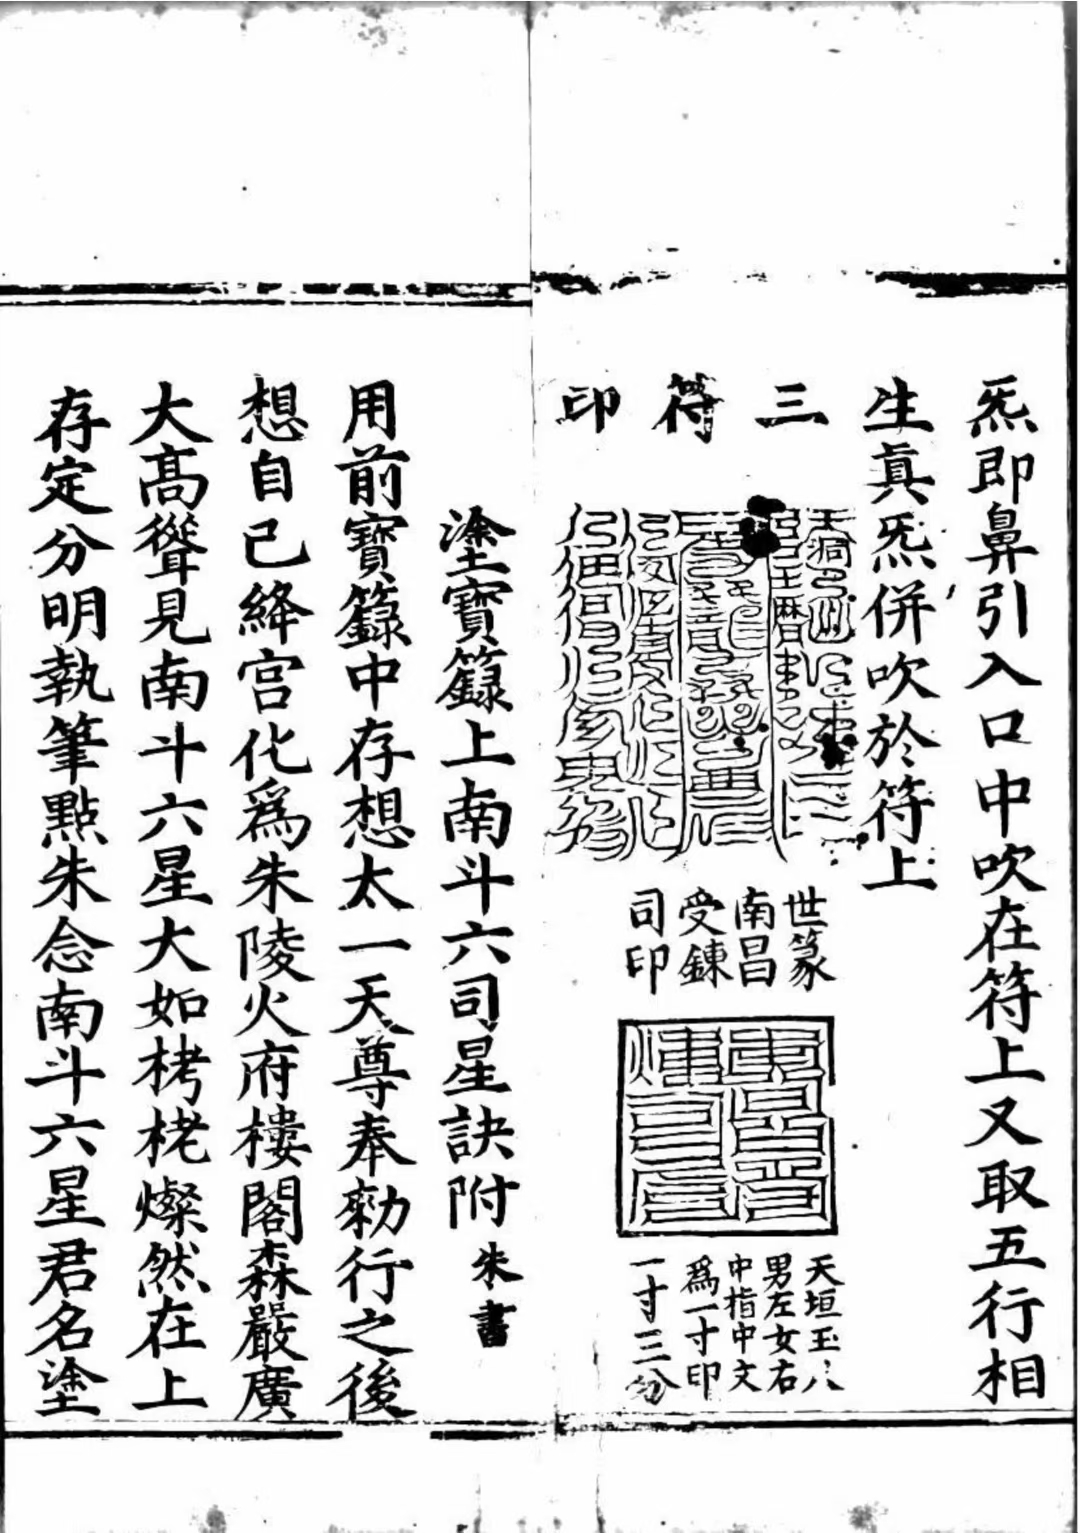 炁即鼻引入口中吹在符上又取五行相
生眞炁併吹於符上
三符印
世篆
南昌
受鍊
司印
天垣玉
男左女右
中指中文
爲一寸印
一寸三分
塗寶籙上南斗六司星訣附朱書
用前寶籙中存想太一天尊奉勑行之後
想自己絳宫化爲朱陵火府樓閣森嚴廣
大髙聳見南斗六星大如栲栳燦然在上
存定分明執筆點朱念南斗六星君名塗